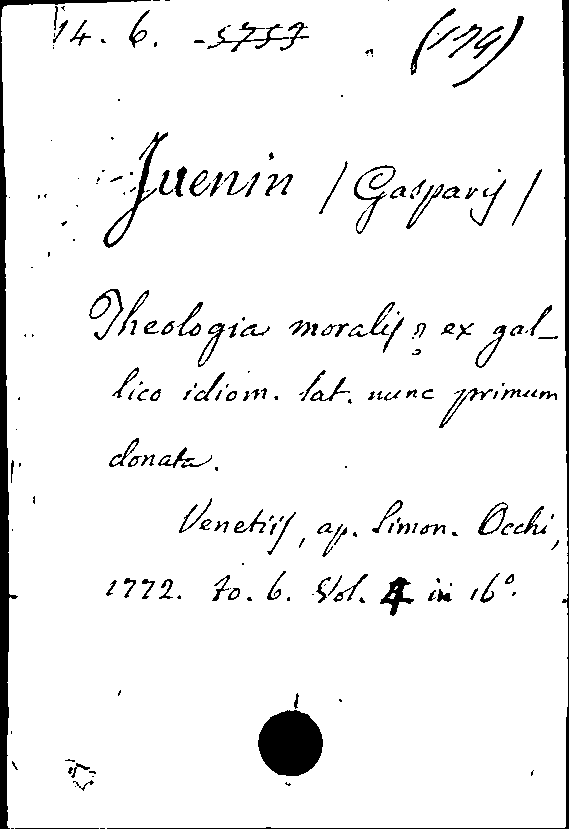 14. 6. -5757 (179)
Juenin / Gasparis /
Theologia moralis ex gal-
lico idiom. lat. nunc primum
donata.
Venetiis, ap. Simon. Occhi,
1772. to. 6. Vol. 4 in 16°.